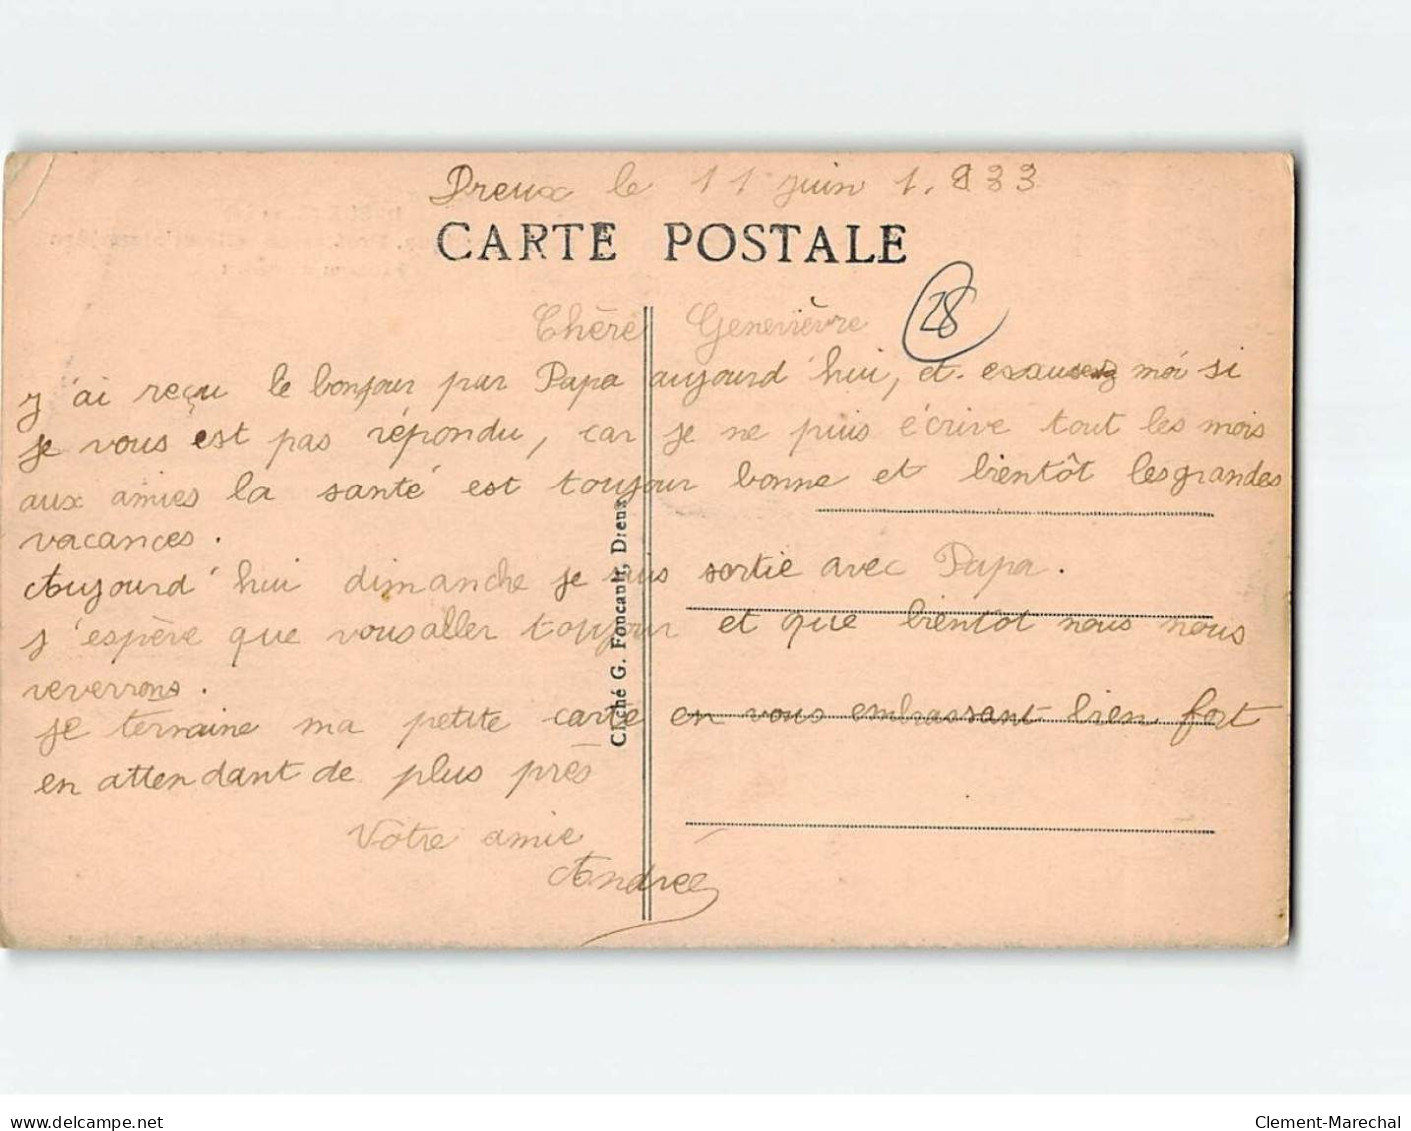 Dreux le 11 juin 1.933
CARTE POSTALE
Chère Genevièvre
28
J'ai reçu le bonjour par Papa aujourd'hui, et exausez moi si
je vous est pas répondu, car je ne puis écrive tout les mois
aux amies la santé est toujour bonne et bientôt les grandes
vacances.
Aujourd'hui dimanche je suis sortie avec Papa.
J'espère que vous aller toujour et que bientôt nous nous
reverrons.
je termine ma petite carte en vous embrassant bien fort
en attendant de plus près
Votre amie
Andrée
Cliché G. Foucault, Dreux
delcampe.net
Clement-Marechal